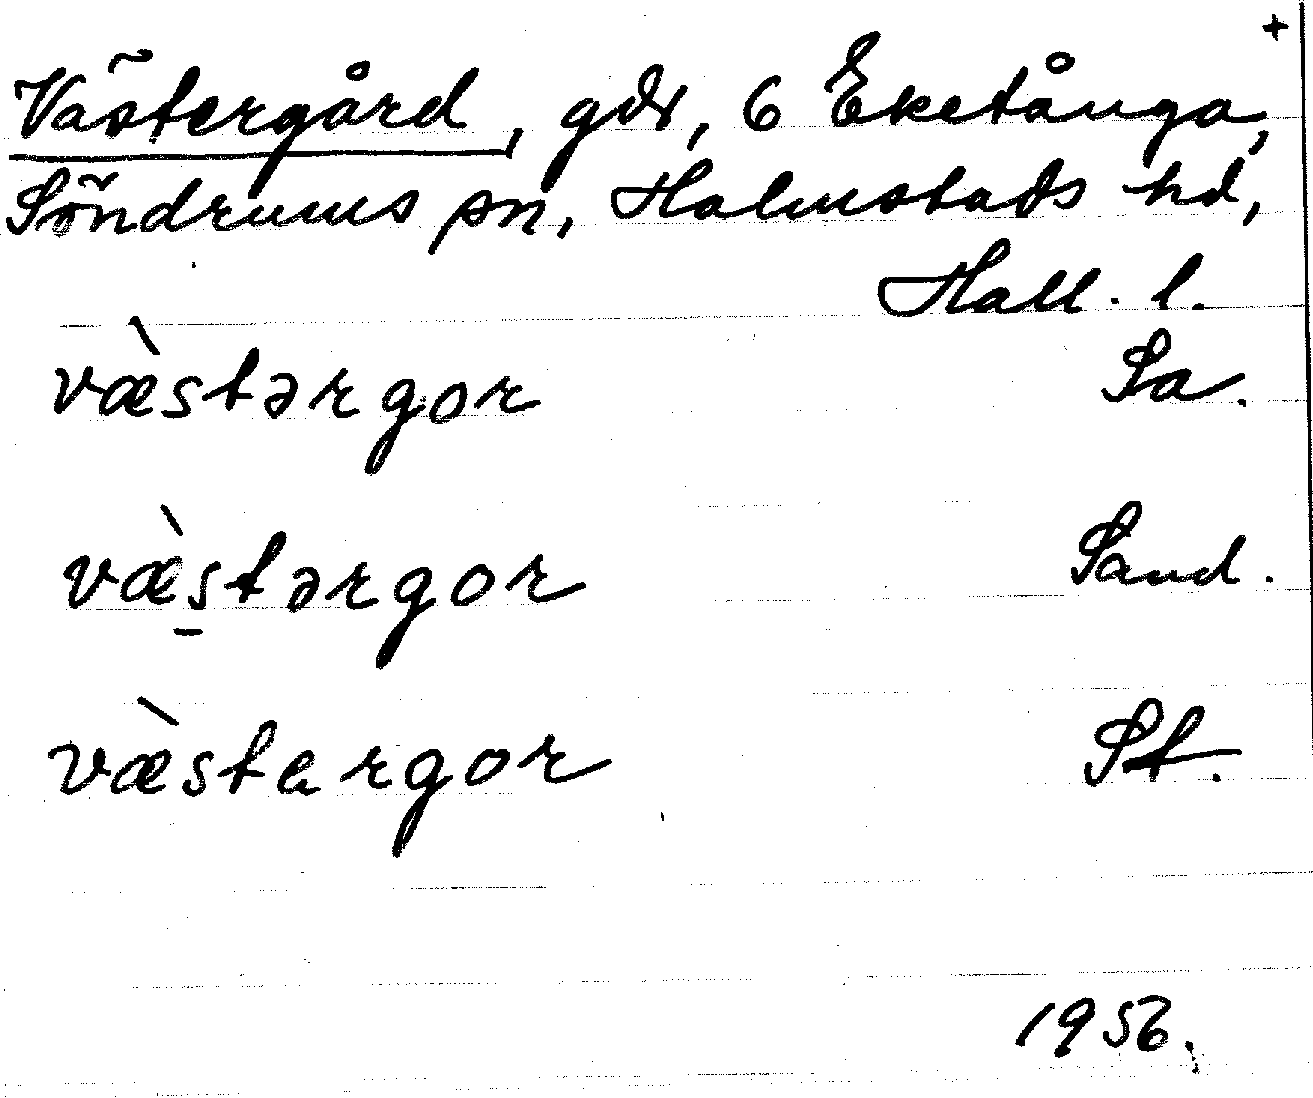 +
Västergård, gdr, 6 Eketånga,
Söndrums sn, Halmstads hd,
Hall. l.
væ̀stərgor Sa.
væ̀stərgor Sand.
væ̀stargor St.
1956.